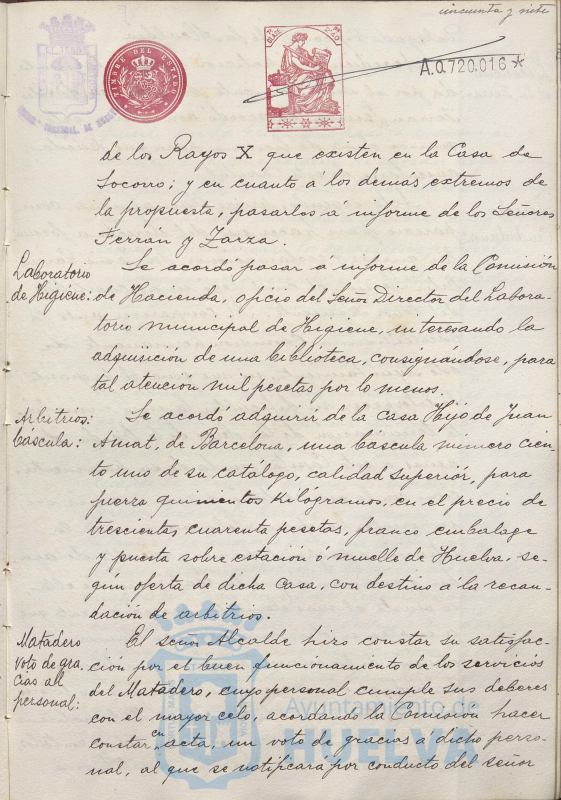 cincuenta y siete
TIMBRE DEL ESTADO
CLASE 8ª
A.0.720.016*
de los Rayos X que existen en la Casa de
Socorro; y en cuanto á los demás extremos de
la propuesta, pasarlos á informe de los Señores
Ferrán y Zarza.
Laboratorio
de Higiene:
Se acordó pasar á informe de la Comisión
de Hacienda, oficio del Señor Director del Labora-
torio municipal de Higiene, interesando la
adquisición de una biblioteca, consignándose, para
tal atención mil pesetas por lo menos.
Arbitrios:
Báscula:
Se acordó adquirir de la casa Hijo de Juan
Amat, de Barcelona, una báscula número cien-
to uno de su catálogo, calidad superior, para
fuerza quinientos kilógramos, en el precio de
trescientas cuarenta pesetas, franco embalage
y puesta sobre estación ó muelle de Huelva, se-
gún oferta de dicha casa, con destino á la recau-
dación de arbitrios.
Matadero
voto de gra
cias al
personal:
El señor Alcalde hizo constar su satisfac-
ción por el buen funcionamiento de los servicios
del Matadero, cuyo personal cumple sus deberes
con el mayor celo, acordando la Comisión hacer
constar en acta, un voto de gracias á dicho perso-
nal, al que se notificará por conducto del señor
Ayuntamiento de
HUELVA